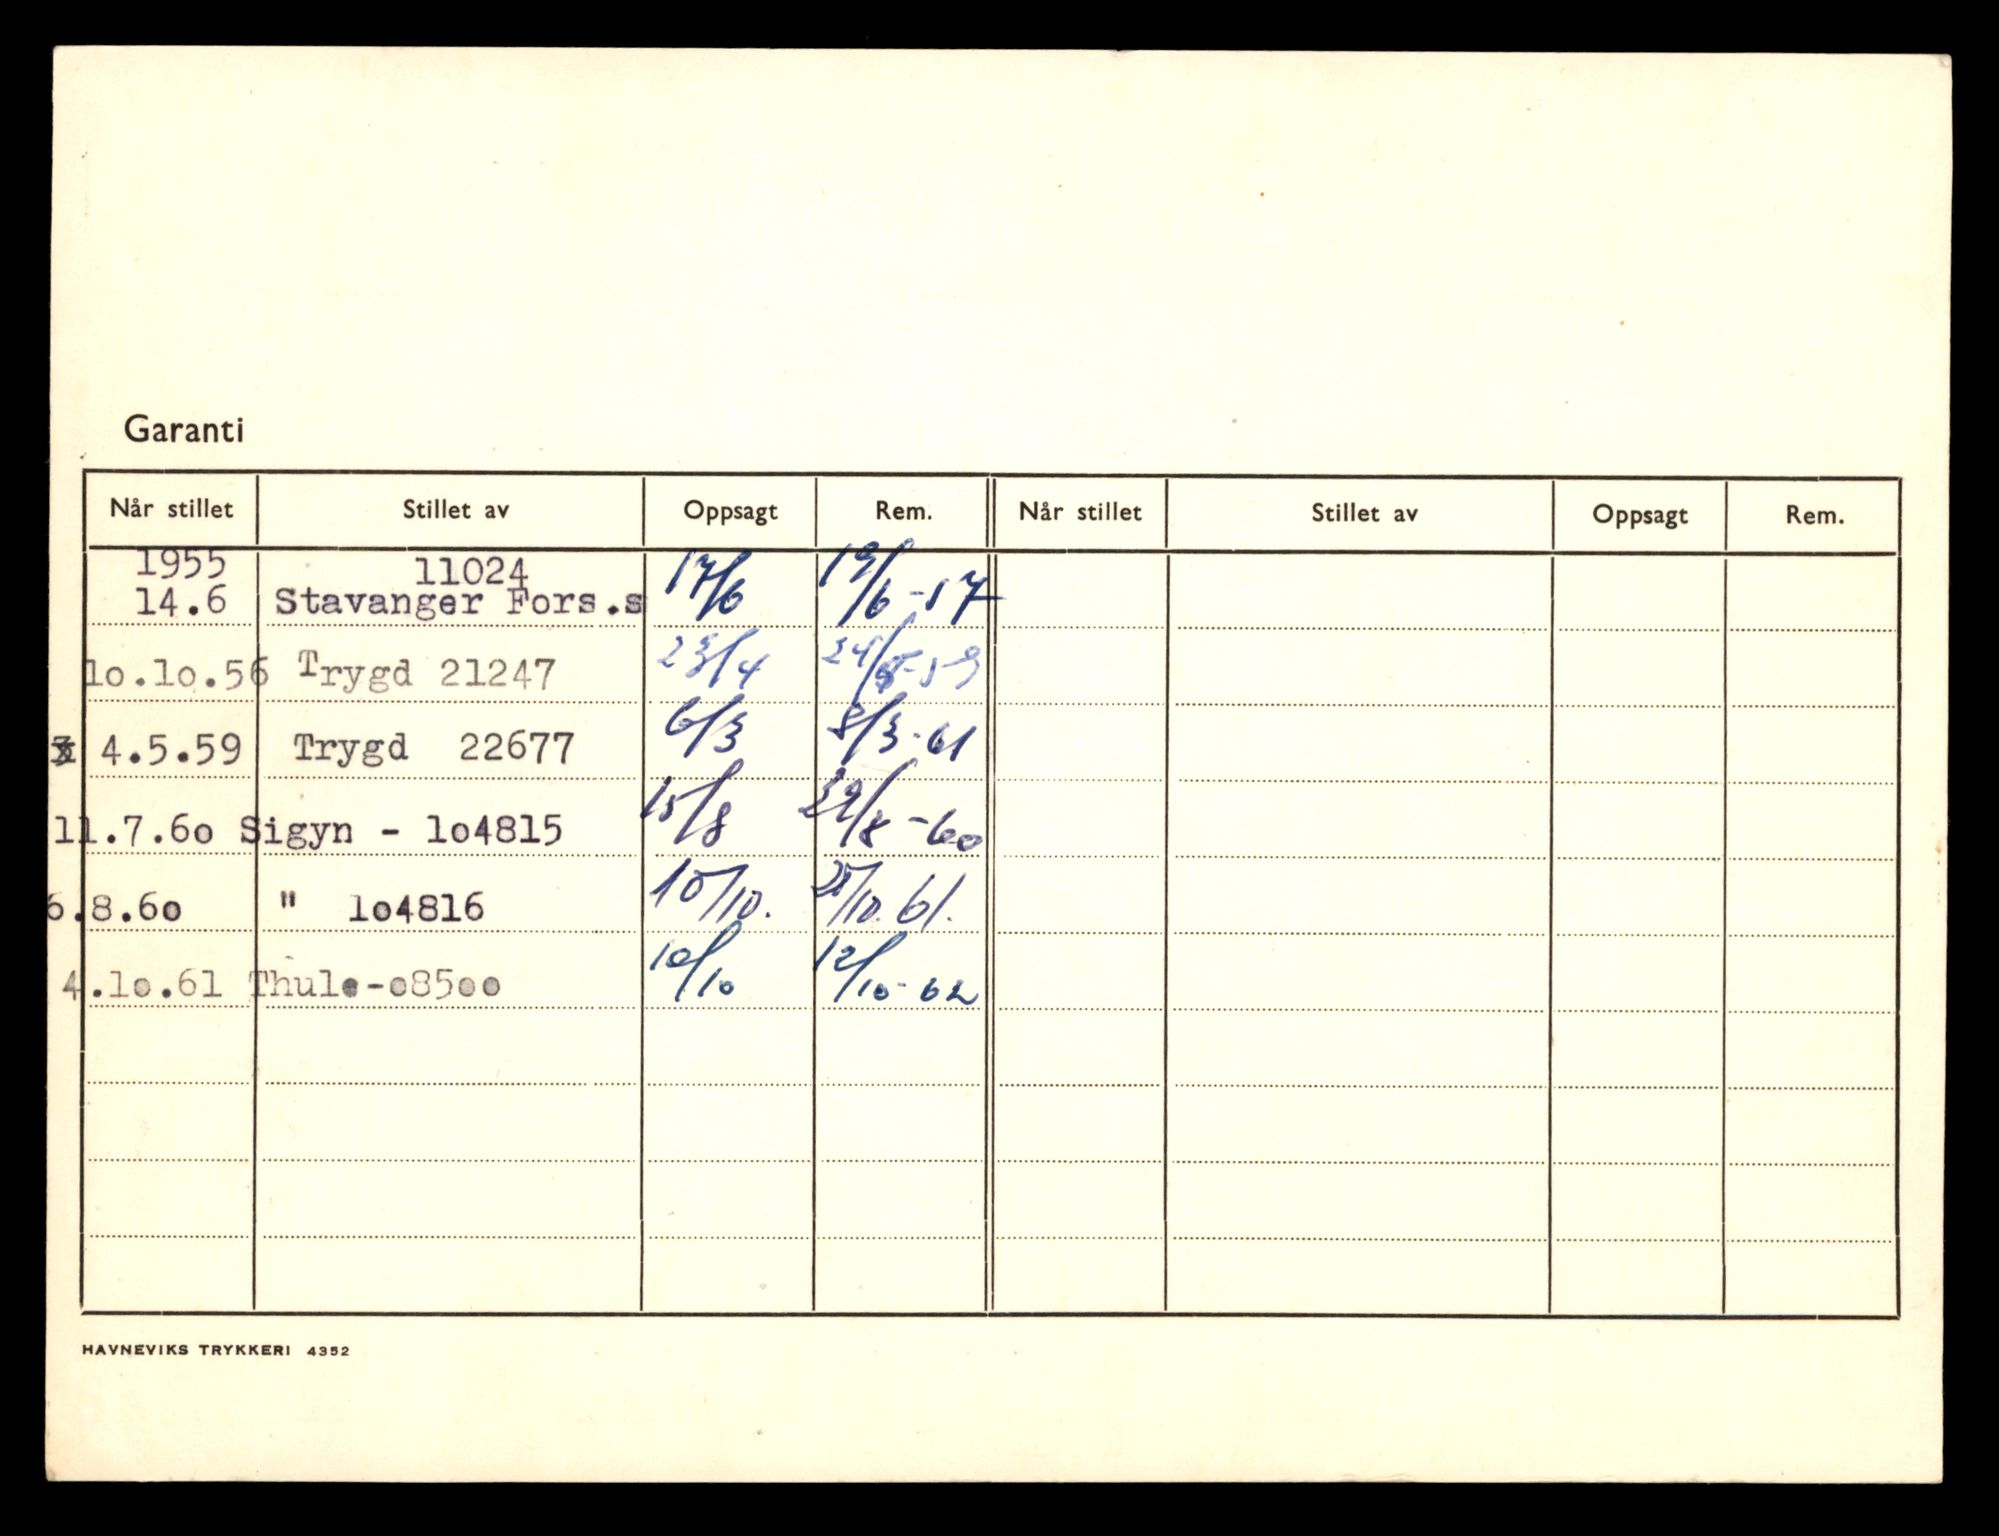 Garanti
Når stillet Stillet av Oppsagt Rem. Når stillet Stillet av Oppsagt Rem.
1955 11024
14.6 Stavanger Fors.s 17/6 19/6-57
10.10.56 Trygd 21247 23/4 24/5-59
4.5.59 Trygd 22677 6/3 8/3-61
11.7.60 Sigyn - 104815 15/8 29/8-60
6.8.60 " 104816 10/10. 25/10.61.
4.10.61 Thule-08500 10/10 12/10-62
HAVNEVIKS TRYKKERI 4352